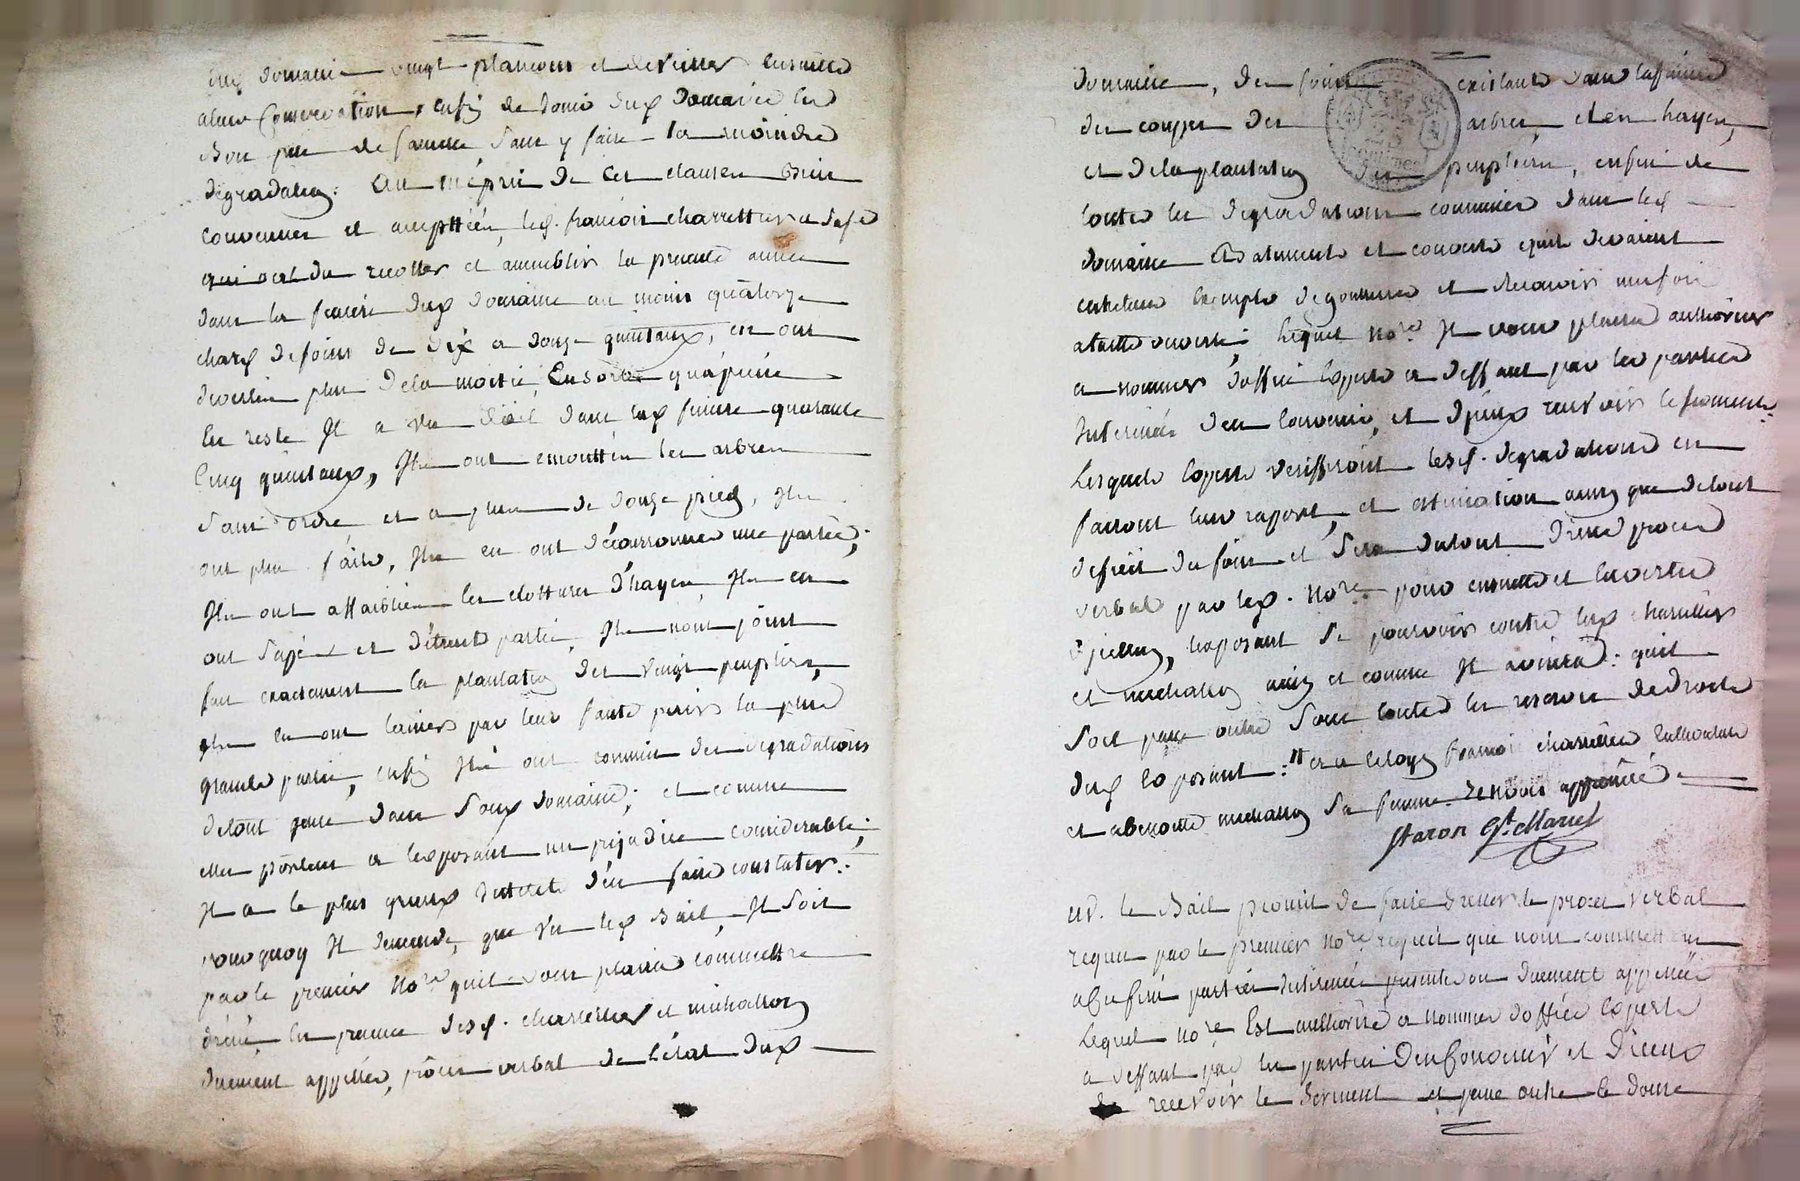 dud domaine vingt plancons et de veiller ensuitte
a leur Conservation, enfin de Jouir dud domaine en
Bon pere de famille sans y faire la moindre
degradation. Au mépris de ces clauses Bien
convenues et accepttées, lesd. francois charrettier et sa fe
qui ont du recolter et assemblir la presente année
dans les feniere dud domaine au moins quatorze
chars de foins de dix a douze quintaux, en ont
diverti plus de la moitié, Ensorte qu'a peine
en reste Jl a vu d'œil dans lad finiere quarante
Cinq quintaux, Jls ont emouttés les arbres
sans ordre et a plus de douze pied, Jls
ont plus faits, Jls en ont découronné une partie;
Jls ont affaiblies les clottures d'hayes, Jls en
ont sapé et détruit partie, Jls n'ont point
fait exactement la plantation des vingt peupliers,
Jls en ont laissés par leur faute perir la plus
grande partie, enfin Jls ont commis des degradations
de tout genre dans soud domaine; et comme
elles portent a l'exposant un prejudice considerable;
Jl a le plus grand Jnteret d'en faire constater:
pourquoy Jl demande, que vu led Bail, Jl soit
par le premier Nore quil vous plaira commettre
dréssé, en presence desd. charrettier et michallon
duement appellés, procès verbal de l'état dud
domaine, des foins existants dans la finiere
des coupes des arbres, et en hayes,
et de la plantation des peupliers, enfin de
toutes les degradations commises dans led
domaine Batiments et couverts quils devoient
entretenir exempts de gouttieres et recevoir une fois
a taitte ouverte; lequel Nore Jl vous plaira authoriser
a nommer d'office experts a deffaut par les parties
Jnteressées d'en convenir, et d'jceux recevoir le serment.
Lesquels experts verifiront lesd. degradations en
fairont leur raport, et estimation ainsy que de tout
deficit de foin et sera du tout dressé procès
verbal par led. Nore pour ensuitte et en vertu
d'jcelluy, l'exposant se pourvoir contre lesd charettier
et michallon ainsy et comme Jl avisera: quil
soit passé outre sous toutes les reserves de droits
dud exposant: "et a lesoyé francois charettier cultivateur
et a Benoitte michallon sa femme. renvoi approuvé
Staron St. Marcel
vu. le Bail permis de faire dresser le proces verbal
requis par le premier Nore requis que nous commettons
a ces fins parties Jnteressées presentes ou duement appellées
lequel Nore Est authorisé a nommer d'office Experts
a deffaut par les parties d'en convenir et d'iceux
recevoir le serment et passé outre le donné